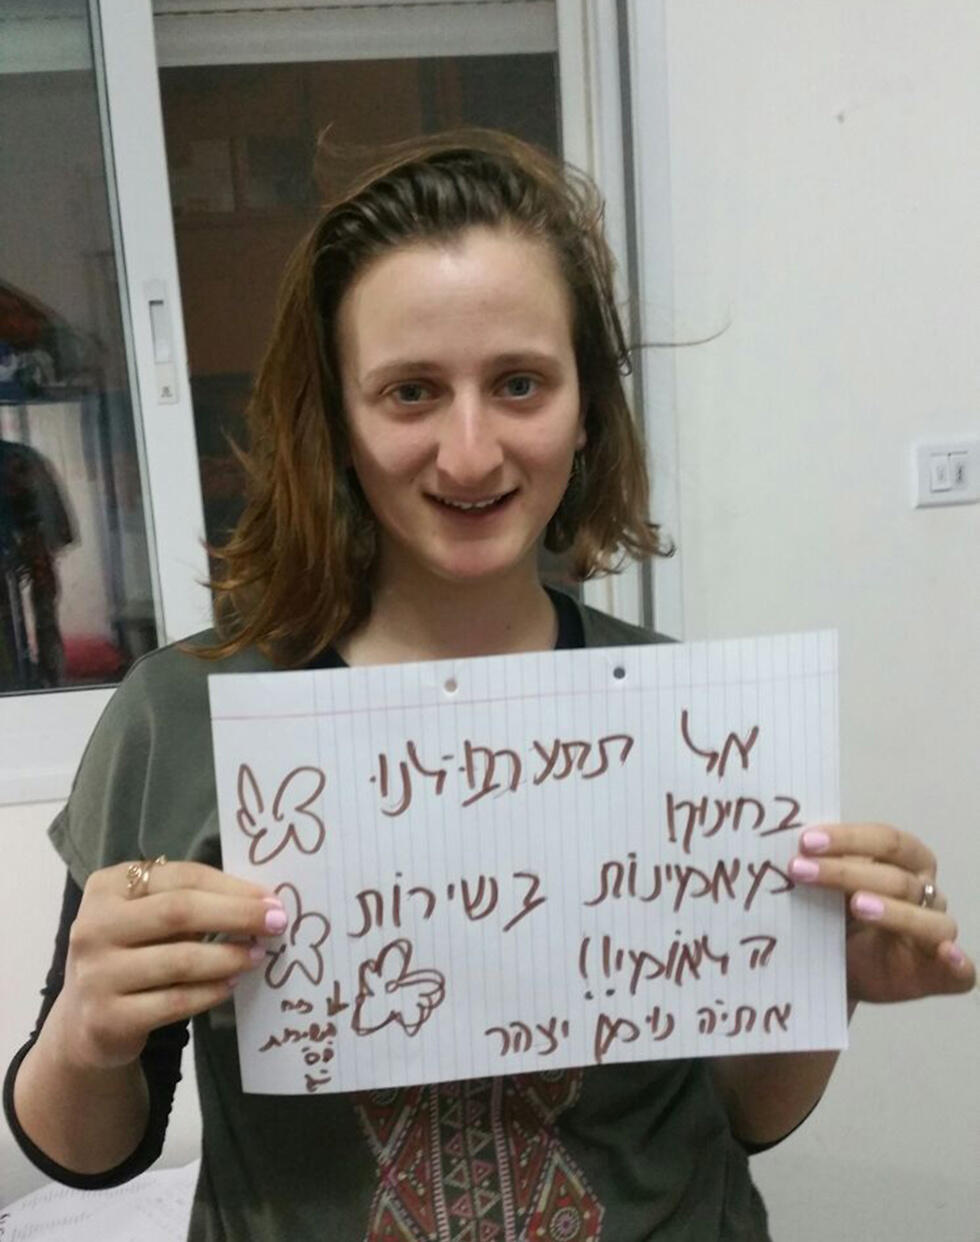 אל תתערבו לנו
בחינוך!
מאמינות בשירות
הלאומי!!
אתיה נוימן יצהר